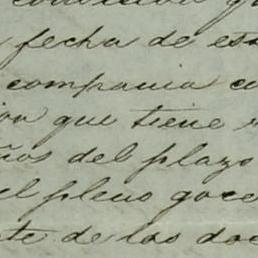 fecha de es
compania co
que tiene
ños del plazo
el pleno goce
te de los do